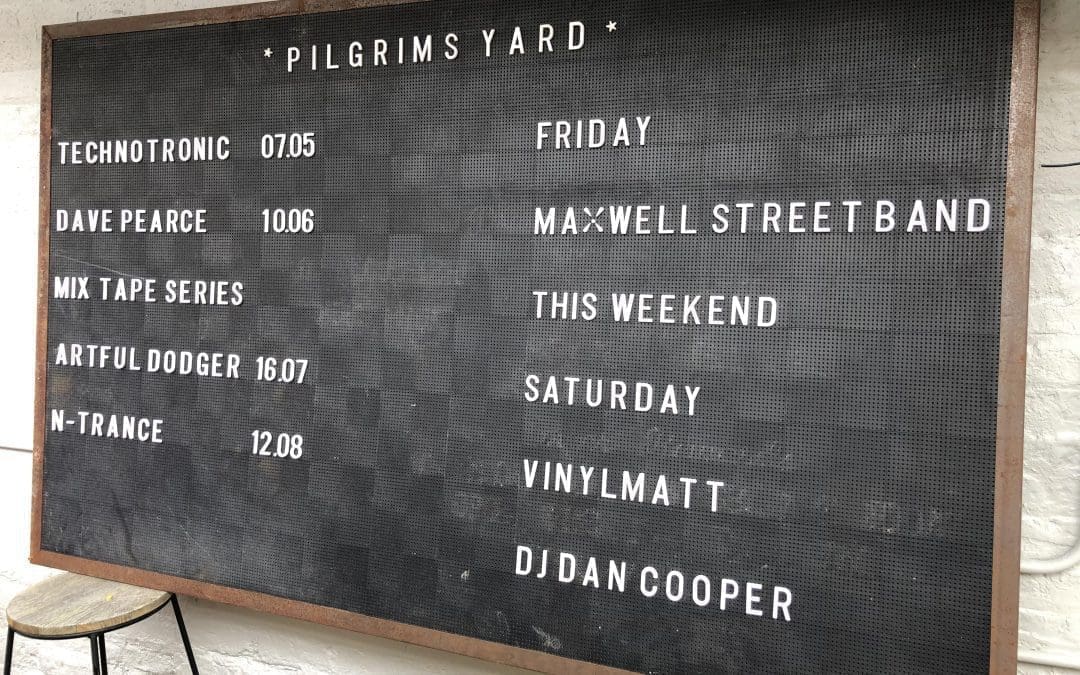 * PILGRIMS YARD *
TECHNOTRONIC 07.05
DAVE PEARCE 10.06
MIX TAPE SERIES
ARTFUL DODGER 16.07
N-TRANCE 12.08
FRIDAY
MAXWELL STREET BAND
THIS WEEKEND
SATURDAY
VINYLMATT
DJ DAN COOPER